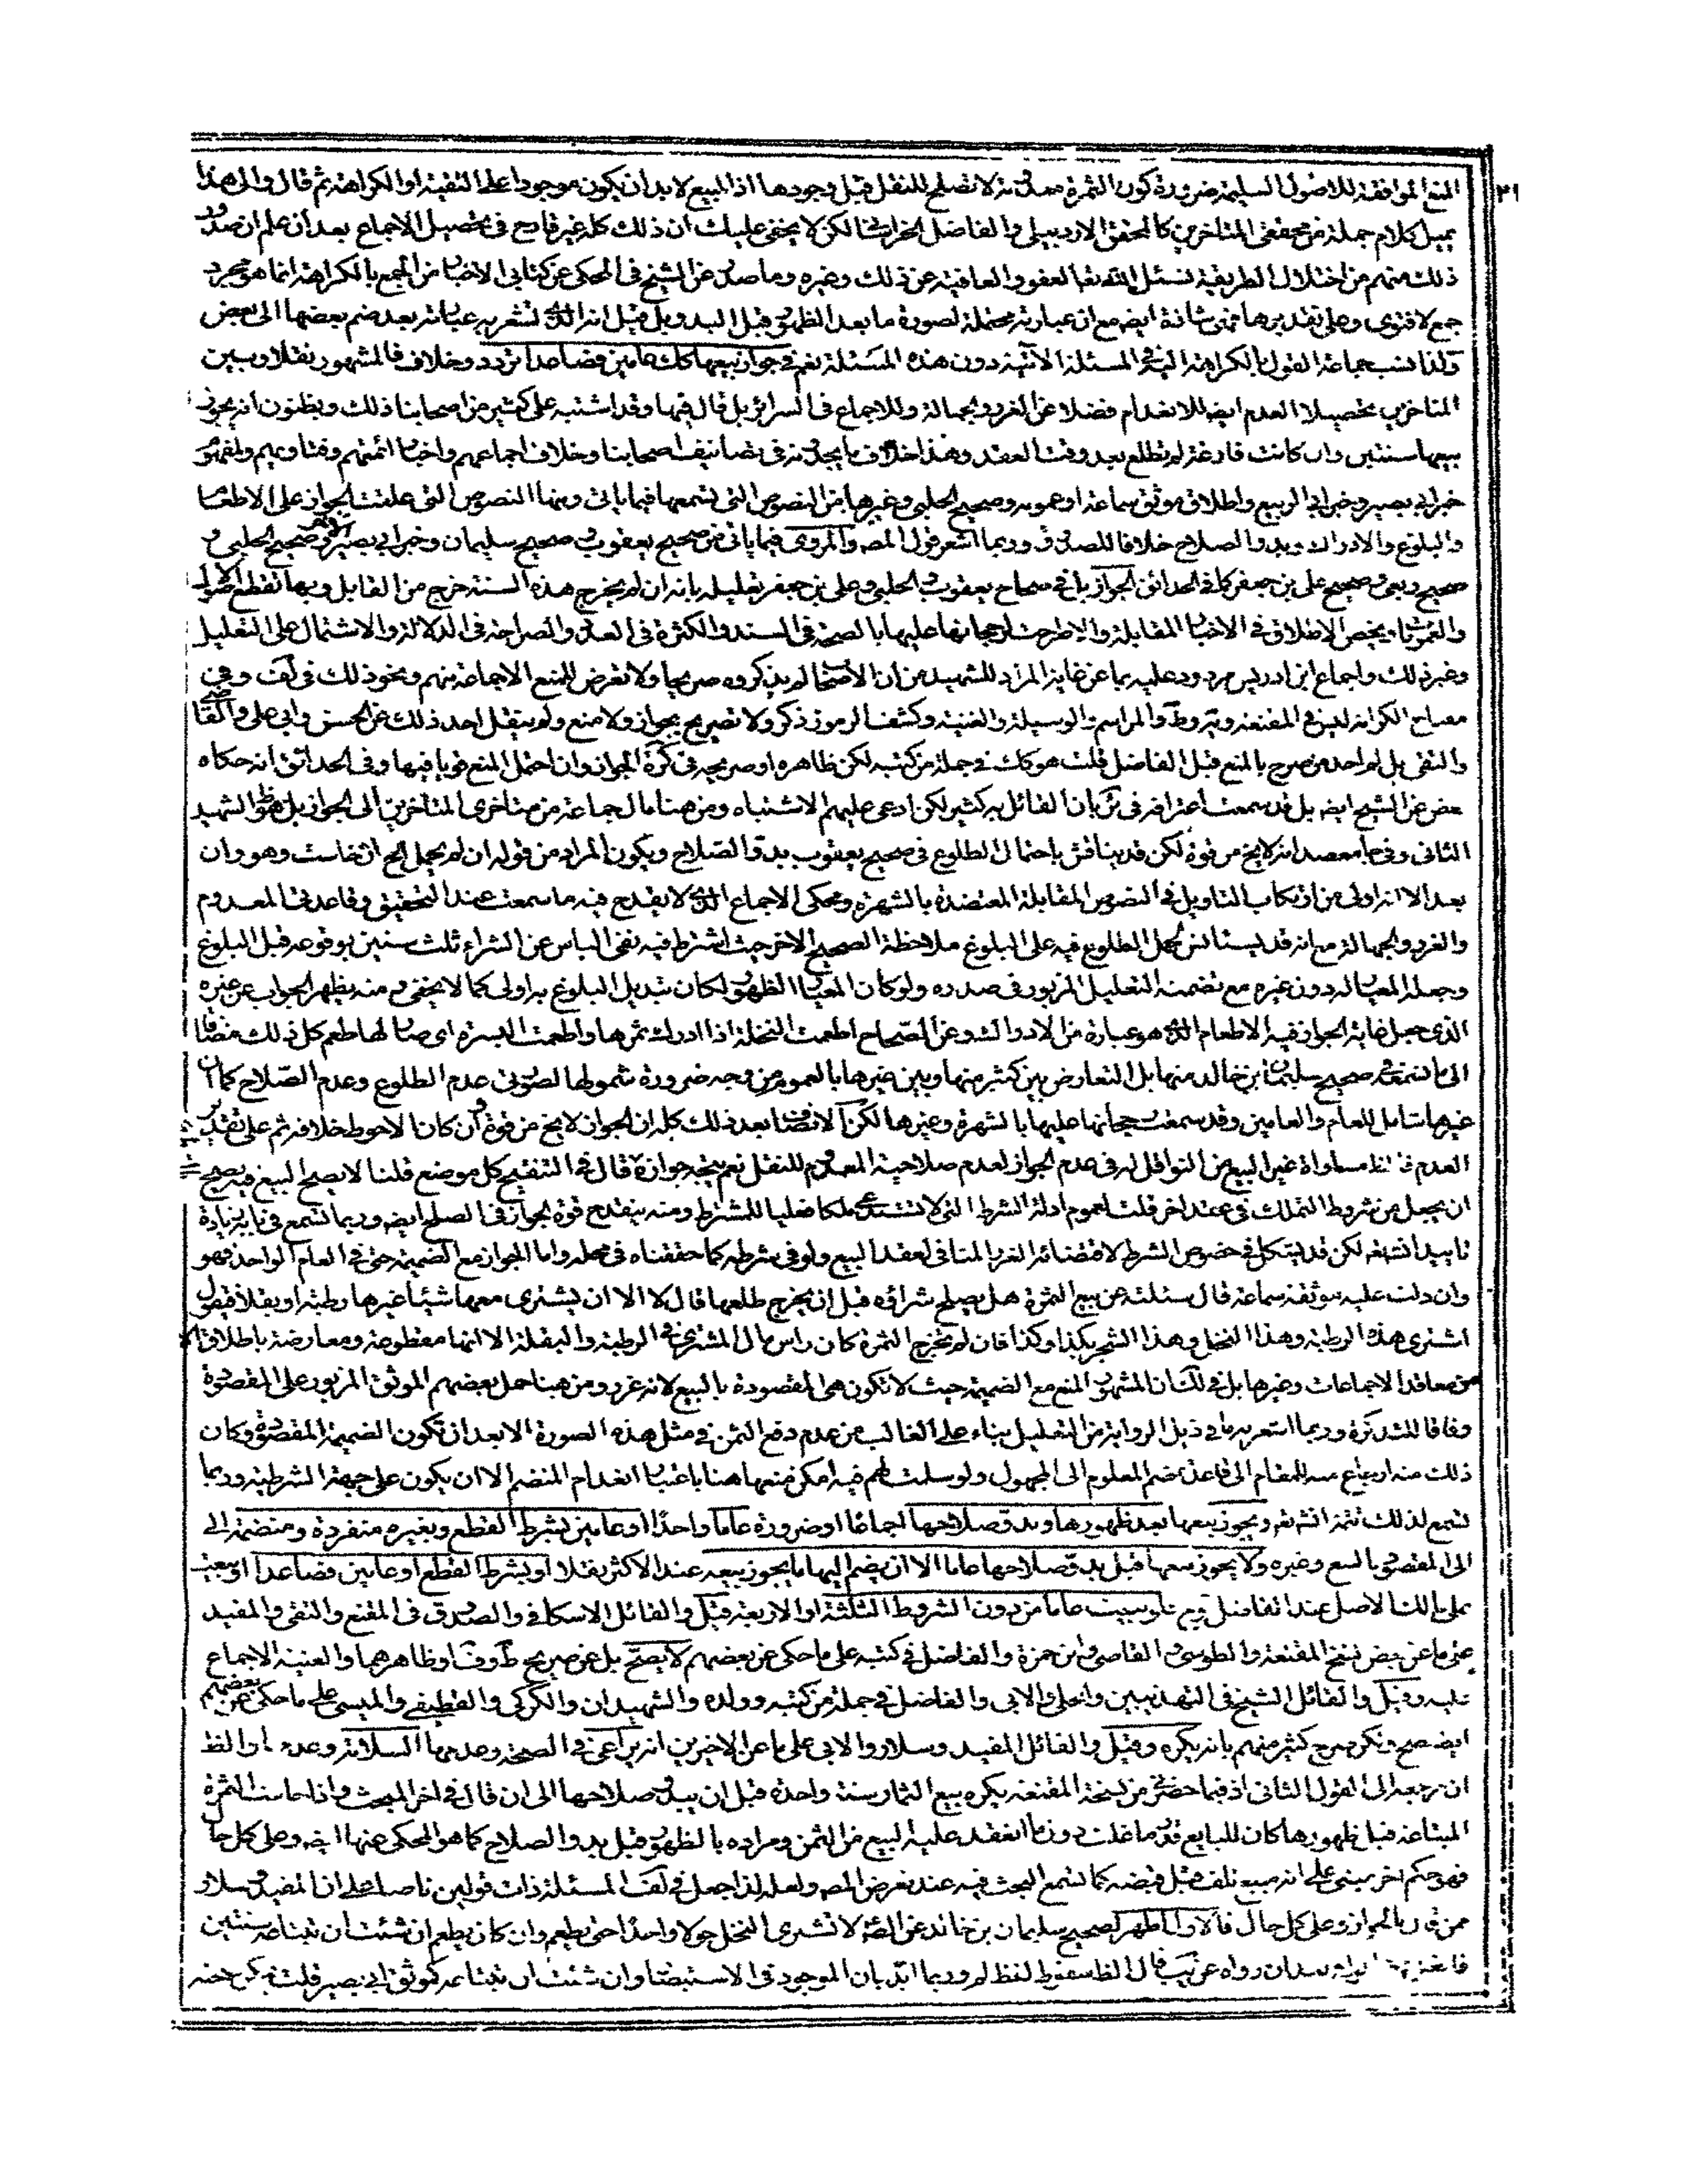 المنع الموافقة للاصول السليمة ضرورة كون الثمرة معدومة لا تصلح للنقل قبل وجودها اذ المبيع لا بد ان يكون موجودا على التقية او الكراهة ثم قال والى هذا
يميل كلام جملة من محققى المتاخرين كالمحقق الاردبيلى والفاضل الخراسانى لكن لا يخفى عليك ان ذلك كله غير قادح فى تحصيل الاجماع بعد ان علم ان صدور
ذلك منهم من اختلال الطريقة نسئل الله تعا العفو والعافية عن ذلك وغيره وما صدر عن الشيخ فى المحكى عن كتابى الاخبار من الجمع بالكراهة انما هو مجرد
جمع لا فتوى وعلى تقديرها فهى شاذة ايضا مع ان عبارته محتملة لصورة ما بعد الظهور قبل البدو بل قيل انه الذى تشعر به عباراته بعد ضم بعضها الى بعض
ولذا نسب جماعة القول بالكراهة اليه فى المسئلة الآتية دون هذه المسئلة نعم فى جواز بيعها كك عامين فصاعدا تردد وخلاف فالمشهور نقلا وبين
المتاخرين تحصيلا العدم ايضا للانعدام فضلا عن الغرر والجهالة وللاجماع فى السرائر بل قال فيها وقد اشتبه على كثير من اصحابنا ذلك ويظنون انه يجوز
بيعها سنتين وان كانت فارغة لم تطلع بعد وقت العقد وهذا خلاف ما يجدونه فى تصانيف اصحابنا وخلاف اجماعهم واخبار ائمتهم وفتاويهم ولمفهوم
خبر ابى بصير وخبر ابى الربيع واطلاق موثق سماعة او عمومه وصحيح الحلبى وغيرها من النصوص التى تسمعها فيما ياتى ومنها النصوص التى علقت الجواز على الاطعام
والبلوغ والادراك وبدو الصلاح خلافا للصدوق وربما اشعر قول المص والمروى فيما ياتى من صحيح يعقوب وصحيح سليمان وخبر ابى بصير وصحيح الحلبى و
صحيح ربعى وصحيح على بن جعفر كما فى الحدائق الجواز بل فى صحاح يعقوب والحلبى وعلى بن جعفر تعليله بانه ان لم يخرج هذه السنة خرج من القابل وبها تقطع الاصول
والعمومات ويخص الاطلاق فى الاخبار المقابلة والا طرحت لرجحانها عليها بالصحة فى السند والكثرة فى العدد والصراحة فى الدلالة والاشتمال على التعليل
وغير ذلك واجماع ابن ادريس مردود عليه بما عن غاية المراد للشهيد من ان الاصحاب لم يذكروه صريحا ولا تعرض للمنع الا جماعة منهم ونحو ذلك فى لف وفى
مصباح الكرامة ليس فى المقنعة وية وط والمراسم والوسيلة والغنية وكشف الرموز ذكر ولا تصريح بجواز ولا منع ولم ينقل احد ذلك عن الحسن وابى على والقاضى
والتقى بل لم اجد من صرح بالمنع قبل الفاضل قلت هو كك فى جملة من كتبه لكن ظاهره او صريحه فى كرة الجواز وان احتمل المنع قويا فيها وفى الحدائق انه حكاه
بعض عن الشيخ ايضا بل قد سمعت اعترافه فى ئر بان القائل به كثير لكن ادعى عليهم الاشتباه ومن هنا مال جماعة من متاخرى المتاخرين الى الجواز بل هو ظ الشهيد
الثانى وفى جامع صد انه لا يخ من قوة لكن قد يناقش باحتمال الطلوع فى صحيح يعقوب بدو الصلاح ويكون المراد من قوله ان لم يحمل الخ ان خاست وهو وان
بعد الا انه اولى من ارتكاب التاويل فى النصوص المقابلة المعتضدة بالشهرة ومحكى الاجماع الذى لا يقدح فيه ما سمعت عند التحقيق وقاعدتى المعدوم
والغرر والجهالة مع انه قد يستانس لحمل الطلوع فيه على البلوغ ملاحظة الصحيح الاخر حيث اشترط فيه نفى الباس عن الشراء ثلث سنين بوقوعه قبل البلوغ
وجعله المعيار له دون غيره مع تضمنه التعليل المزبور فى صدره ولو كان المعيار الظهور لكان تبديل البلوغ به اولى كما لا يخفى ومنه يظهر الجواب عن غيره
الذى جعل غاية الجواز فيه الاطعام الذى هو عبارة من الادراك وعن الصحاح اطعمت النخلة اذا ادرك ثمرها واطعمت البسرة اى صار لها طعم كل ذلك مضافا
الى ما تسمعه فى صحيح سليمان بن خالد منها بل التعارض بين كثير منها وبين غيرها بالعموم من وجه ضرورة شمولها لصورتى عدم الطلوع وعدم الصلاح كما ان
غيرها شامل للعام والعامين وقد سمعت رجحانها عليها بالشهرة وغيرها لكن الانصاف بعد ذلك كله ان الجواز لا يخ من قوة وان كان الاحوط خلافه ثم على تقدير
العدم فالظ مساواة غير البيع من النواقل له فى عدم الجواز لعدم صلاحية المعدوم للنقل نعم يتجه جوازه قال فى التنقيح كل موضع قلنا لا يصح البيع فيه يصح
ان يجعل من شروط التملك فى عقد اخر قلت لعموم ادلة الشرط التى لا تستدعى ملكا فعليا للمشترط ومنه ينقدح قوة الجواز فى الصلح ايضا وربما تسمع فى ياتى زيادة
تاييد انشاءالله لكن قد يشكل فى خصوص الشرط لاقتضائه الغرر المنافى لعقد البيع ولو فى شرطه كما حققناه فى محله واما الجواز مع الضميمة حتى فى العام الواحد فهو
وان دلت عليه موثقة سماعة قال سئلته عن بيع الثمرة هل يصلح شرائه قبل ان يخرج طلعها قال لا الا ان يشترى معها شيئا غيرها رطبة او بقلا فيقول
اشترى هذه الرطبة وهذا النخل وهذا الشجر بكذا وكذا فان لم يخرج الثمرة كان راس مال المشترى فى الرطبة والبقلة الا انها مقطوعة ومعارضة باطلاق
من معاقد الاجماعات وغيرها بل فى لك ان المشهور المنع مع الضميمة حيث لا تكون هى المقصودة بالبيع لانه غرر ومن هنا حمل بعضهم الموثق المزبور على المقصودة
وفاقا للتذكرة وربما استعر به ما فى ذيل الرواية من التعليل بناء على الغالب من عدم دفع الثمن فى مثل هذه الصورة الا بعد ان تكون الضميمة المقصودة وكان
ذلك منه المقام الى قاعدة ضم المعلوم الى المجهول ولو سلمت لهم فيه امكن منعها هنا باعتبار انعدام المنضم الا ان يكون على جهة الشرطية وربما
تسمع لذلك تتمة انشاءالله ويجوز بيعها بعد ظهورها وبدو صلاحها اجماعا او ضرورة عاما واحدا او عامين بشرط القطع وبغيره منفردة ومنضمة الى
الى المقصود بالبيع وغيره ولا يجوز بيعها قبل بدو صلاحها عاما الا ان يضم اليها ما يجوز بيعه عند الاكثر نقلا او بشرط القطع او عامين فصاعدا
على مالك الاصل عند الفاضل ولو بيعت عاما من دون الشروط الثلثة او الاربعة قيل والقائل الاسكافى والصدوق فى المقنع والتقى والمفيد
على ما عن بعض نسخ المقنعة والطوسى والقاضى وابن حمزة والفاضل فى كتبه على ما حكى عن بعضهم لا يصح بل عن صريح ط وف او ظاهرهما والغنية الاجماع
عليه وقيل والقائل الشيخ فى التهذيبين والحلى والابى والفاضل فى جملة من كتبه وولده والشهيدان والكركى والقطيفى والميسى على ما حكى عن بعضهم
ايضا يصح ويكره صرح كثير منهم بانه يكره وقيل والقائل المفيد وسلار والابى على ما عن الاخرين انه يراعى فى الصحة وعدمها السلامة وعدمها والظ
ان مرجعه الى القول الثانى اذ فيما حضرنى من نسخة المقنعة يكره بيع الثمار سنة واحدة قبل ان يبدو صلاحها الى ان قال فى اخر المبحث واذا خاست الثمرة
المبتاعة قبل ظهورها كان للبايع ما غلت دون ما انعقد عليه البيع من الثمن ومراده بالظهور قبل بدو الصلاح كما هو المحكى عنها ايضا وعلى كل حال
فهو حكم اخر مبنى على انه مبيع تلف قبل قبضه كما تسمع البحث فيه عند تعرض المص ولعله لذا جعل فى لف المسئلة ذات قولين ناصا على ان المفيد وسلار
ممن قال بالجواز وعلى كل حال فالاول اظهر لصحيح سليمان بن خالد عن الص لا تشترى النخل حولا واحدا حتى يطعم وان كان يطعم ان شئت ان تبتاعه سنتين
فافعل رواه عن يب قال الظ سقوط لفظ لم وربما ايد بان الموجود فى الاستبصار وان شئت ان تبتاعه كموثق ابى بصير قلت